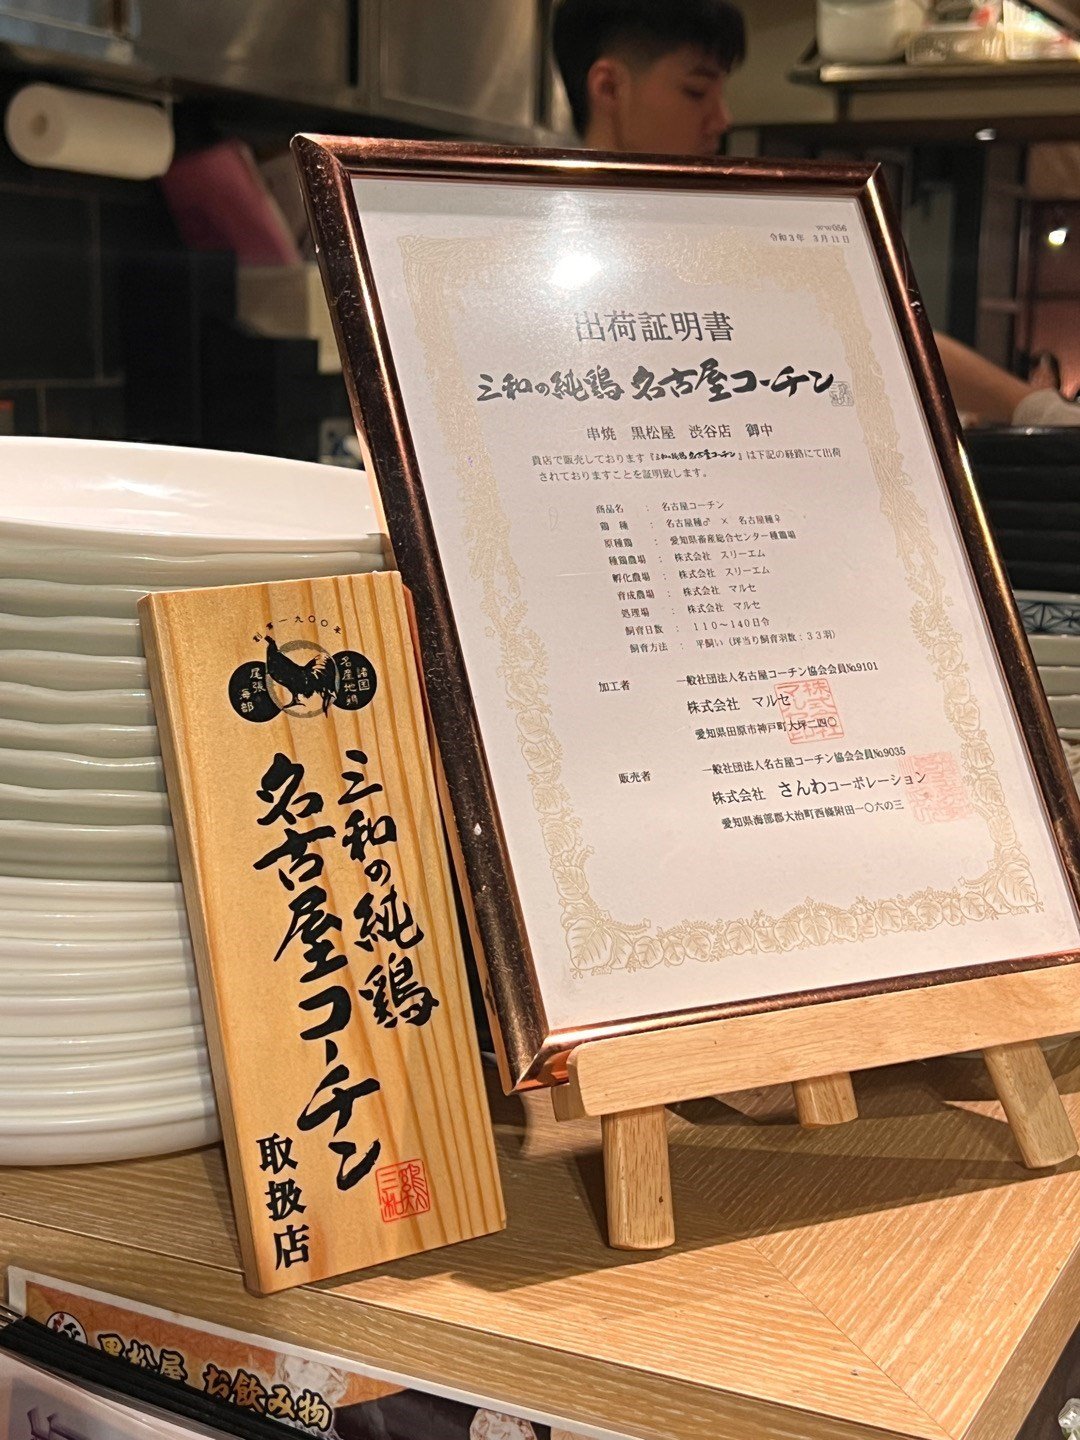 ww056
令和3年 3月11日
出荷証明書
三和の純鶏 名古屋コーチン
串焼 黒松屋 渋谷店 御中
貴店で販売しております『三和の純鶏 名古屋コーチン』は下記の経路にて出荷
されておりますことを証明致します。
商品名 : 名古屋コーチン
鶏種 : 名古屋種♂ × 名古屋種♀
原種鶏 : 愛知県畜産総合センター種鶏場
種鶏農場 : 株式会社 スリーエム
孵化農場 : 株式会社 スリーエム
育成農場 : 株式会社 マルセ
処理場 : 株式会社 マルセ
飼育日数 : 110~140日令
飼育方法 : 平飼い(坪当り飼育羽数:33羽)
加工者 一般社団法人名古屋コーチン協会会員№9101
株式会社 マルセ
愛知県田原市神戸町大坪二四〇
販売者 一般社団法人名古屋コーチン協会会員№9035
株式会社 さんわコーポレーション
愛知県海部郡大治町西條附田一〇六の三
創業一九〇〇年
諸国
名産地鶏
尾張
海部
三和の純鶏
名古屋コーチン
取扱店
三和
鶏
黒松屋 お飲み物